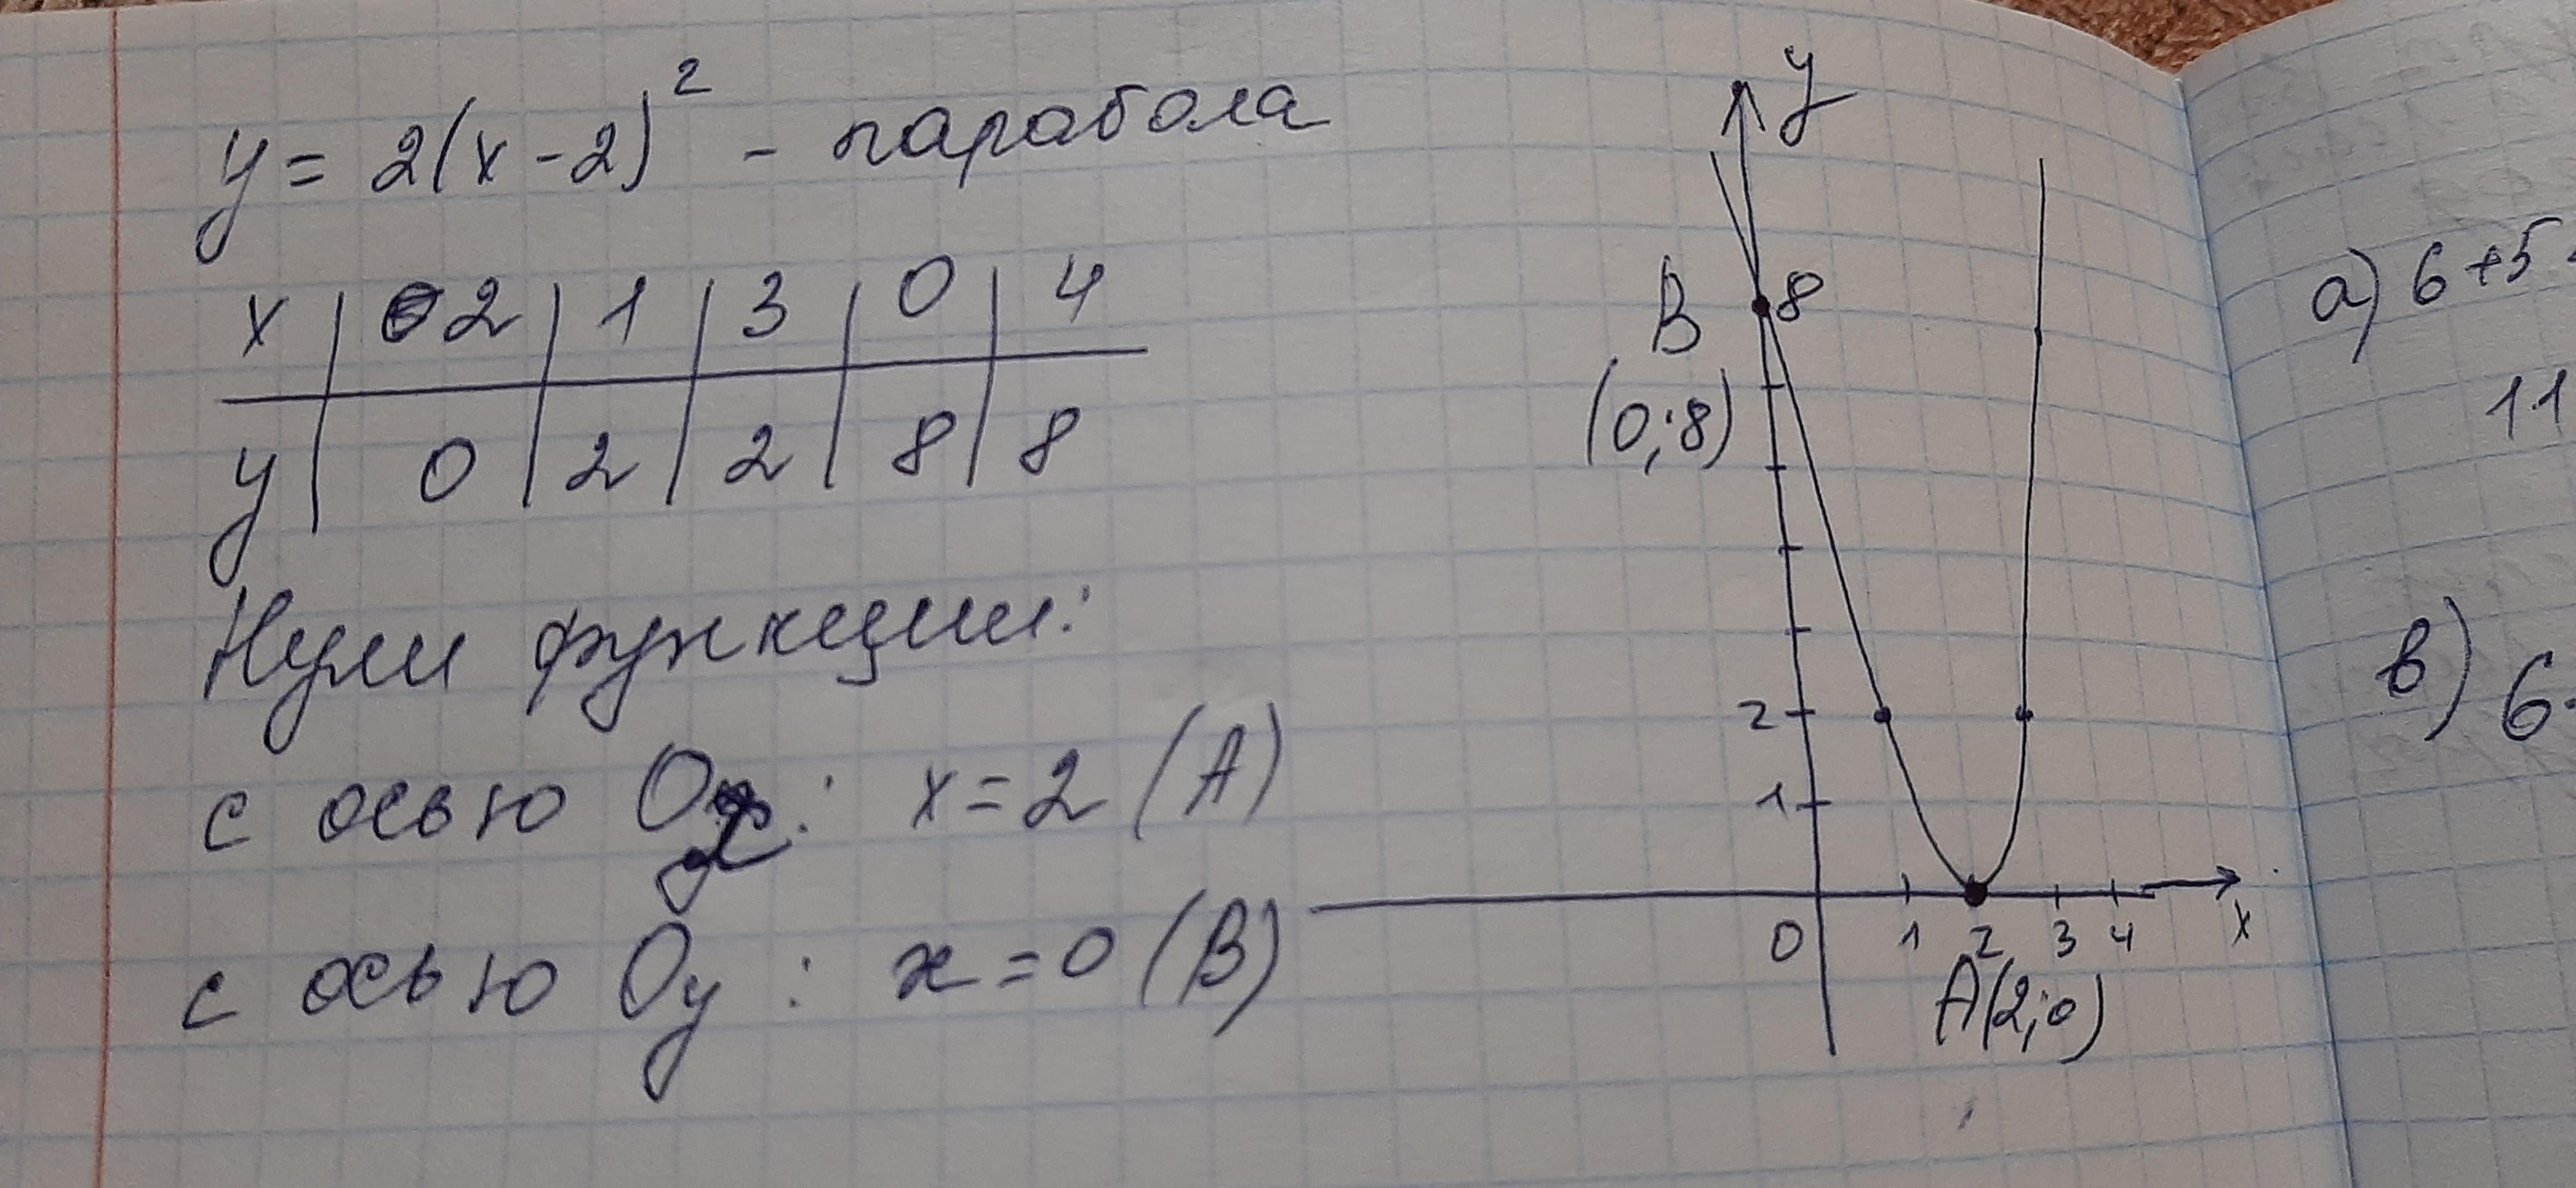 y = 2(x-2)² - парабола
x | 2 | 1 | 3 | 0 | 4
y | 0 | 2 | 2 | 8 | 8
Нули функции:
с осью Ox: x=2 (A)
с осью Oy: x=0 (B)
y
B 8
(0;8)
2
1
0 1 2 3 4 x
A(2;0)
а) 6+5
11
в) 6